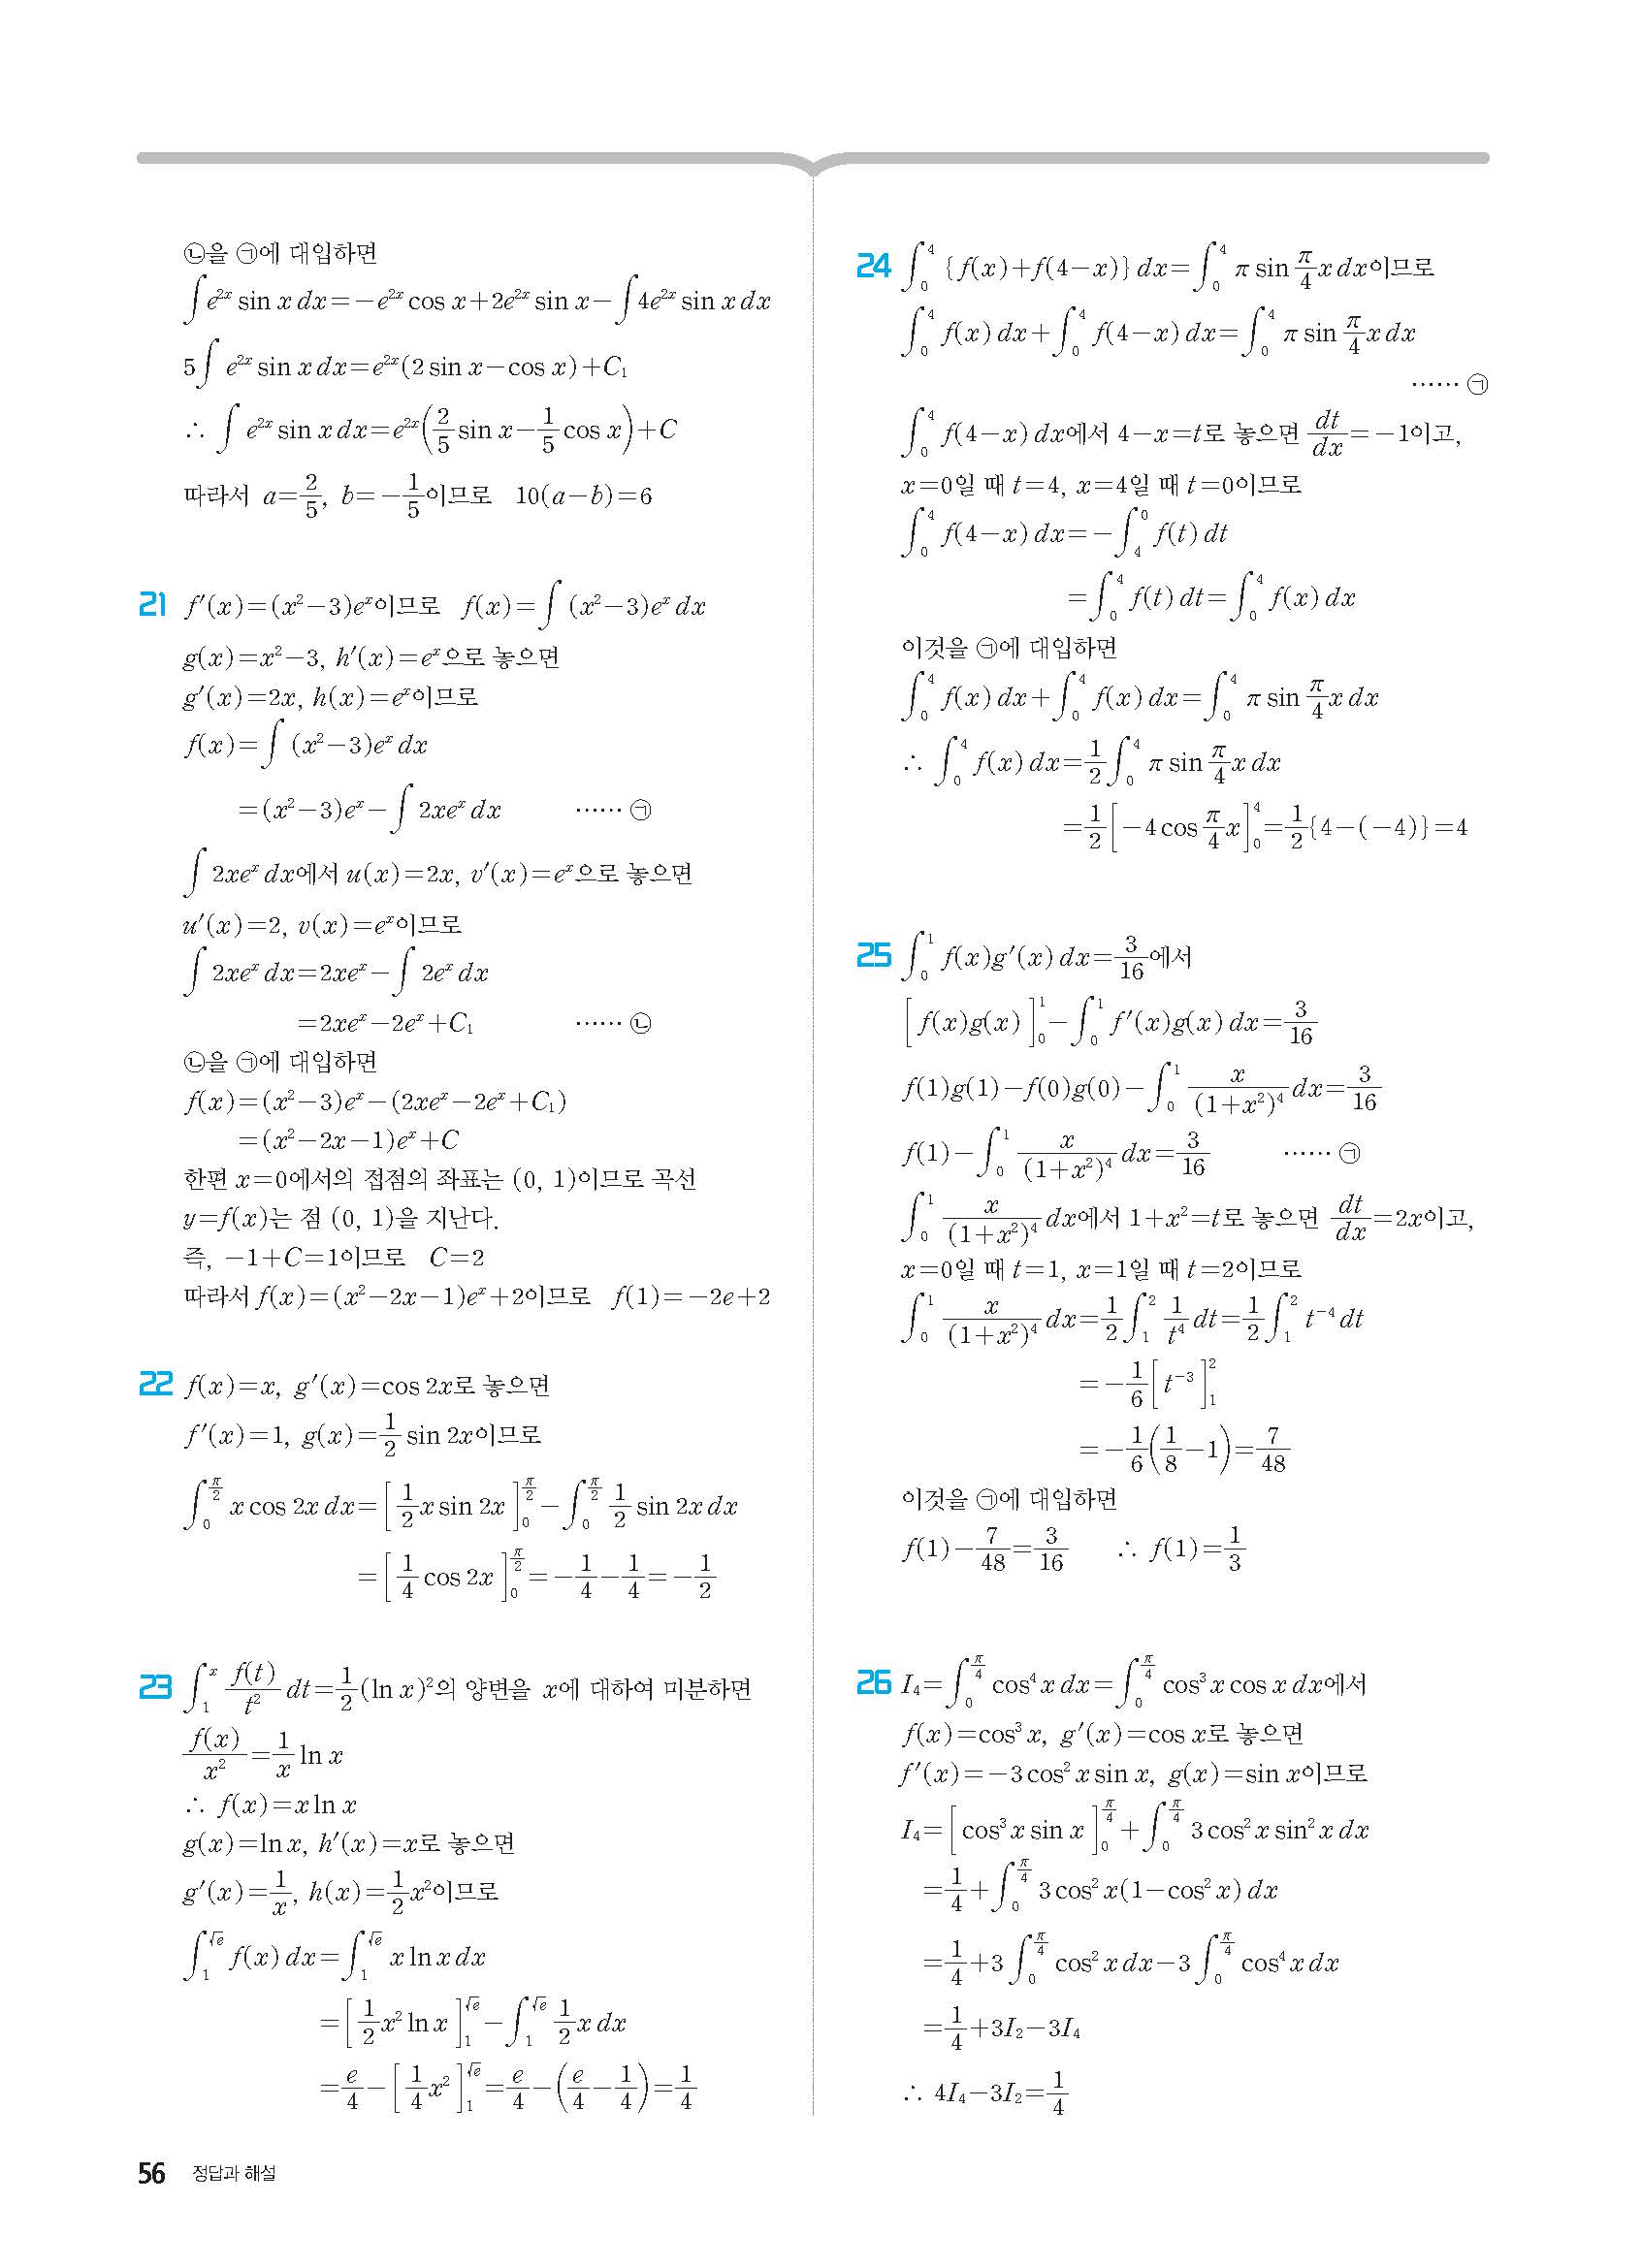 ㉡을 ㉠에 대입하면
∫e^{2x} sin x dx=−e^{2x} cos x+2e^{2x} sin x−∫4e^{2x} sin x dx
5∫ e^{2x} sin x dx=e^{2x}(2 sin x−cos x)+C₁
∴ ∫ e^{2x} sin x dx=e^{2x}(2/5 sin x−1/5 cos x)+C
따라서 a=2/5, b=−1/5이므로 10(a−b)=6
21 f′(x)=(x²−3)e^x이므로 f(x)=∫ (x²−3)e^x dx
g(x)=x²−3, h′(x)=e^x으로 놓으면
g′(x)=2x, h(x)=e^x이므로
f(x)=∫ (x²−3)e^x dx
=(x²−3)e^x−∫ 2xe^x dx …… ㉠
∫ 2xe^x dx에서 u(x)=2x, v′(x)=e^x으로 놓으면
u′(x)=2, v(x)=e^x이므로
∫ 2xe^x dx=2xe^x−∫ 2e^x dx
=2xe^x−2e^x+C₁ …… ㉡
㉡을 ㉠에 대입하면
f(x)=(x²−3)e^x−(2xe^x−2e^x+C₁)
=(x²−2x−1)e^x+C
한편 x=0에서의 접점의 좌표는 (0, 1)이므로 곡선
y=f(x)는 점 (0, 1)을 지난다.
즉, −1+C=1이므로 C=2
따라서 f(x)=(x²−2x−1)e^x+2이므로 f(1)=−2e+2
22 f(x)=x, g′(x)=cos 2x로 놓으면
f′(x)=1, g(x)=1/2 sin 2x이므로
∫_0^{π/2} x cos 2x dx=[1/2 x sin 2x]_0^{π/2}−∫_0^{π/2} 1/2 sin 2x dx
=[1/4 cos 2x]_0^{π/2}=−1/4−1/4=−1/2
23 ∫_1^x f(t)/t² dt=1/2(ln x)²의 양변을 x에 대하여 미분하면
f(x)/x²=1/x ln x
∴ f(x)=x ln x
g(x)=ln x, h′(x)=x로 놓으면
g′(x)=1/x, h(x)=1/2 x²이므로
∫_1^{√e} f(x) dx=∫_1^{√e} x ln x dx
=[1/2 x² ln x]_1^{√e}−∫_1^{√e} 1/2 x dx
=e/4−[1/4 x²]_1^{√e}=e/4−(e/4−1/4)=1/4
24 ∫_0^4 {f(x)+f(4−x)} dx=∫_0^4 π sin π/4 x dx이므로
∫_0^4 f(x) dx+∫_0^4 f(4−x) dx=∫_0^4 π sin π/4 x dx
…… ㉠
∫_0^4 f(4−x) dx에서 4−x=t로 놓으면 dt/dx=−1이고,
x=0일 때 t=4, x=4일 때 t=0이므로
∫_0^4 f(4−x) dx=−∫_4^0 f(t) dt
=∫_0^4 f(t) dt=∫_0^4 f(x) dx
이것을 ㉠에 대입하면
∫_0^4 f(x) dx+∫_0^4 f(x) dx=∫_0^4 π sin π/4 x dx
∴ ∫_0^4 f(x) dx=1/2∫_0^4 π sin π/4 x dx
=1/2[−4 cos π/4 x]_0^4=1/2{4−(−4)}=4
25 ∫_0^1 f(x)g′(x) dx=3/16에서
[f(x)g(x)]_0^1−∫_0^1 f′(x)g(x) dx=3/16
f(1)g(1)−f(0)g(0)−∫_0^1 x/(1+x²)⁴ dx=3/16
f(1)−∫_0^1 x/(1+x²)⁴ dx=3/16 …… ㉠
∫_0^1 x/(1+x²)⁴ dx에서 1+x²=t로 놓으면 dt/dx=2x이고,
x=0일 때 t=1, x=1일 때 t=2이므로
∫_0^1 x/(1+x²)⁴ dx=1/2∫_1^2 1/t⁴ dt=1/2∫_1^2 t⁻⁴ dt
=−1/6[t⁻³]_1^2
=−1/6(1/8−1)=7/48
이것을 ㉠에 대입하면
f(1)−7/48=3/16 ∴ f(1)=1/3
26 I₄=∫_0^{π/4} cos⁴ x dx=∫_0^{π/4} cos³ x cos x dx에서
f(x)=cos³ x, g′(x)=cos x로 놓으면
f′(x)=−3 cos² x sin x, g(x)=sin x이므로
I₄=[cos³ x sin x]_0^{π/4}+∫_0^{π/4} 3 cos² x sin² x dx
=1/4+∫_0^{π/4} 3 cos² x(1−cos² x) dx
=1/4+3∫_0^{π/4} cos² x dx−3∫_0^{π/4} cos⁴ x dx
=1/4+3I₂−3I₄
∴ 4I₄−3I₂=1/4
56 정답과 해설